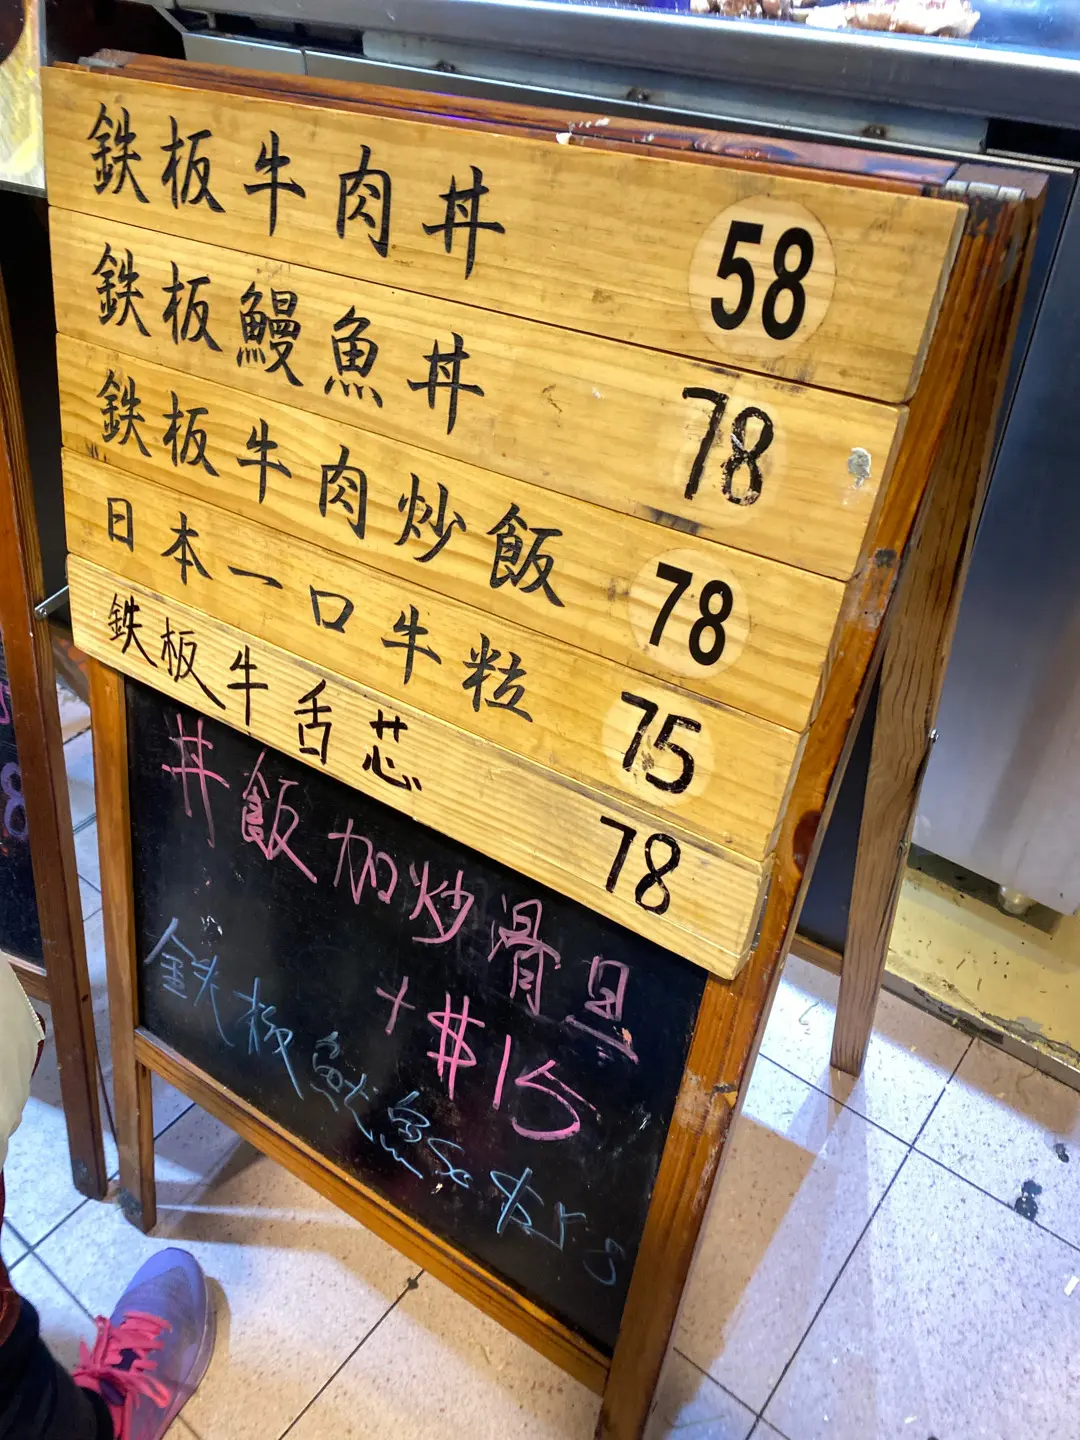 鉄板牛肉丼 58
鉄板鰻魚丼 78
鉄板牛肉炒飯 78
日本一口牛粒 75
鉄板牛舌芯 78
丼飯加炒滑旦
+$15
鉄板魷魚